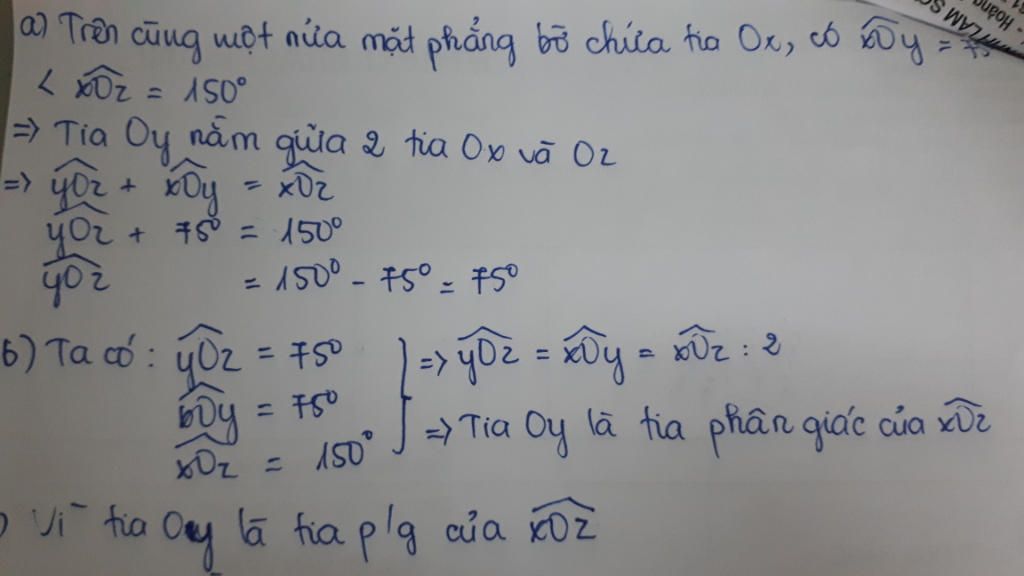 a) Trên cùng một nửa mặt phẳng bờ chứa tia Ox, có xOy = 75°
< xOz = 150°
=> Tia Oy nằm giữa 2 tia Ox và Oz
=> yOz + xOy = xOz
yOz + 75° = 150°
yOz = 150° - 75° = 75°
b) Ta có: yOz = 75° => yOz = xOy = xOz : 2
bOy = 75°
=> Tia Oy là tia phân giác của xOz
xOz = 150°
) Vì tia Oy là tia p/g của xOz
LAM
Hoàng